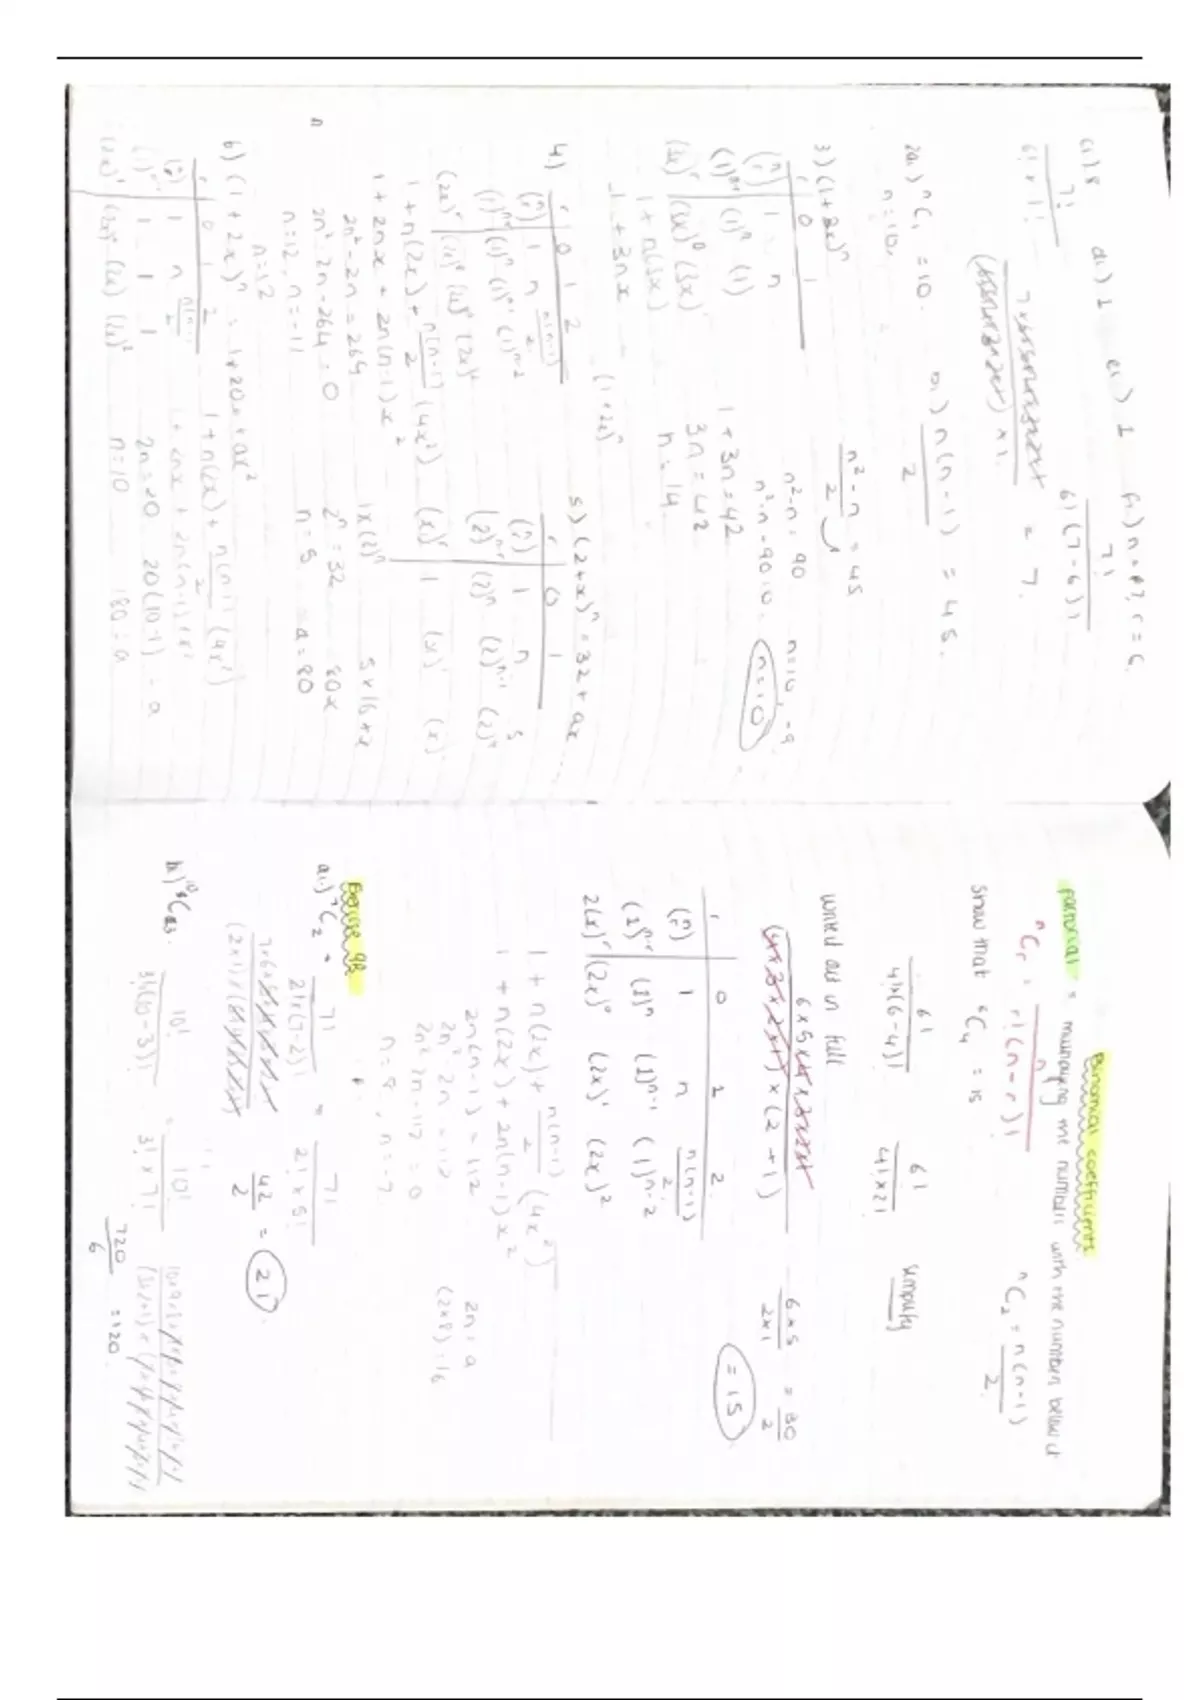 c.) 8   d.) 1   e.) 1   f.) n = 7, r = 6.
7!
6! × 1!
7!
6! (7-6)!
= 7.
2a.) ⁿC₁ = 10.
n = 10,
b.) n(n-1) = 45.
2
n² - n = 45
2
n² - n = 90
n² - n - 90 = 0.
n = 10, -9
n = 10
3) (1 + 3x)ⁿ
r 0 1
(n r) 1 n
(1)ⁿ⁻ʳ (1)ⁿ (1)
(3x)ʳ (3x)⁰ (3x)¹
1 + n(3x)
1 + 3nx
1 + 3n = 42
3n = 42
n = 14
(1 + 2x)ⁿ
4) r 0 1 2
(n r) 1 n n(n-1)
2
(1)ⁿ⁻ʳ (1)ⁿ (1)ⁿ⁻¹ (1)ⁿ⁻²
(2x)ʳ (2x)⁰ (2x)¹ (2x)²
1 + n(2x) + n(n-1) (4x²)
2
1 + 2nx + 2n(n-1)x²
2n² - 2n = 264
2n² - 2n - 264 = 0
n = 12, n = -11
n = 12
5) (2+x)ⁿ = 32 + ax
r 0 1
(n r) 1 n
(2)ⁿ⁻ʳ (2)ⁿ (2)ⁿ⁻¹
(x)ʳ 1 (x)¹ (x)
1 x (2)ⁿ
2ⁿ = 32 80x
n = 5 a = 80
6) (1 + 2x)ⁿ = 1 + 20x + ax²
r 0 1 2
(n r) 1 n n(n-1)
2
(1)ⁿ⁻ʳ 1 1 1
(2x)ʳ (2x)⁰ (2x) (2x)²
1 + n(2x) + n(n-1) (4x²)
2
1 + 2nx + 2n(n-1)x²
2n = 20   20(10-1) = a
n = 10   180 = a
Binomial coefficients
Factorial = multiplying the numbers with the numbers below it
ⁿCᵣ = n!
r!(n-r)!
ⁿC₂ = n(n-1)
2
Show that ⁶C₄ = 15
6!
4!×(6-4)!
6!
4!×2!
simplify
worked out in full
6×5×4×3×2×1
(4×3×2×1) × (2×1)
6×5 = 30
2×1   2
= 15
r 0 1 2
(n r) 1 n n(n-1)
2
(1)ⁿ⁻ʳ (1)ⁿ (1)ⁿ⁻¹ (1)ⁿ⁻²
2(x)ʳ (2x)⁰ (2x)¹ (2x)²
1 + n(2x) + n(n-1) (4x²)
2
1 + n(2x) + 2n(n-1)x²
2n(n-1) = 112
2n² - 2n = 112
2n² - 2n - 112 = 0
n = 8, n = -7
2n = a
(2×8) = 16
Exercise 9B
a.) ⁷C₂ =
7!
2!×(7-2)!
= 7!
2!×5!
42
2
= 21
b.) ¹⁰C₃.
10!
3!(10-3)!
= 10!
3!×7!
720
6
= 120.